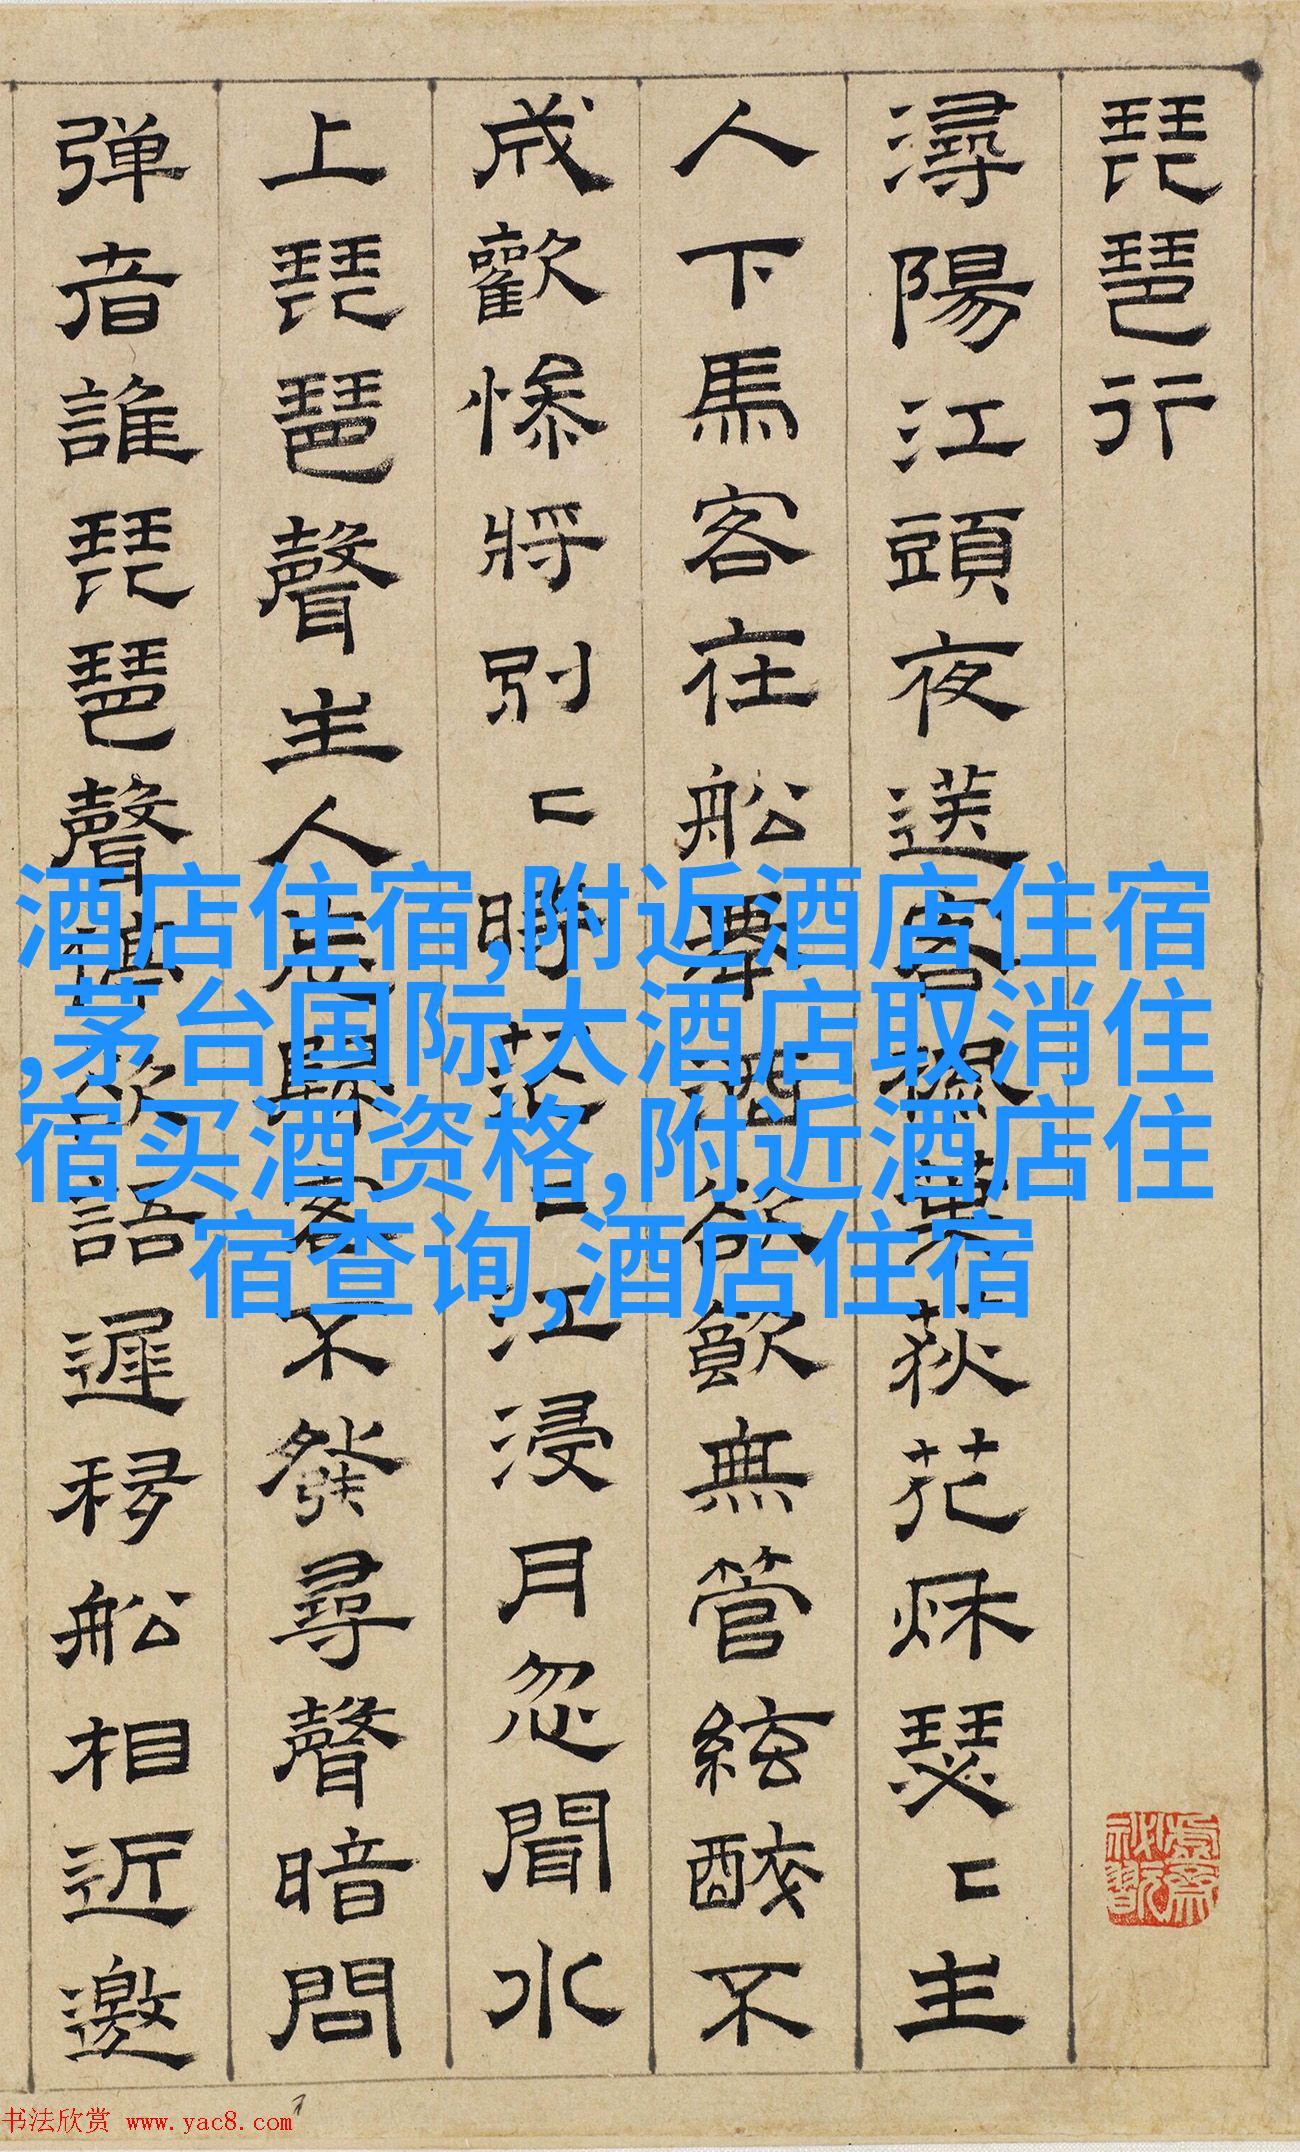 琵琶行
潯陽江頭夜送客楓葉荻花秌瑟〻主
人下馬客在船舉酒欲飲無管絃醉不
成歡慘將別〻時茫〻江浸月忽聞水
上琵琶聲主人忘歸客不發尋聲暗問
弹者誰琵琶聲停欲語遲移船相近邀
酒店住宿,附近酒店住宿
,茅台国际大酒店取消住
宿买酒资格,附近酒店住
宿查询,酒店住宿
书法欣赏 www.yac8.com